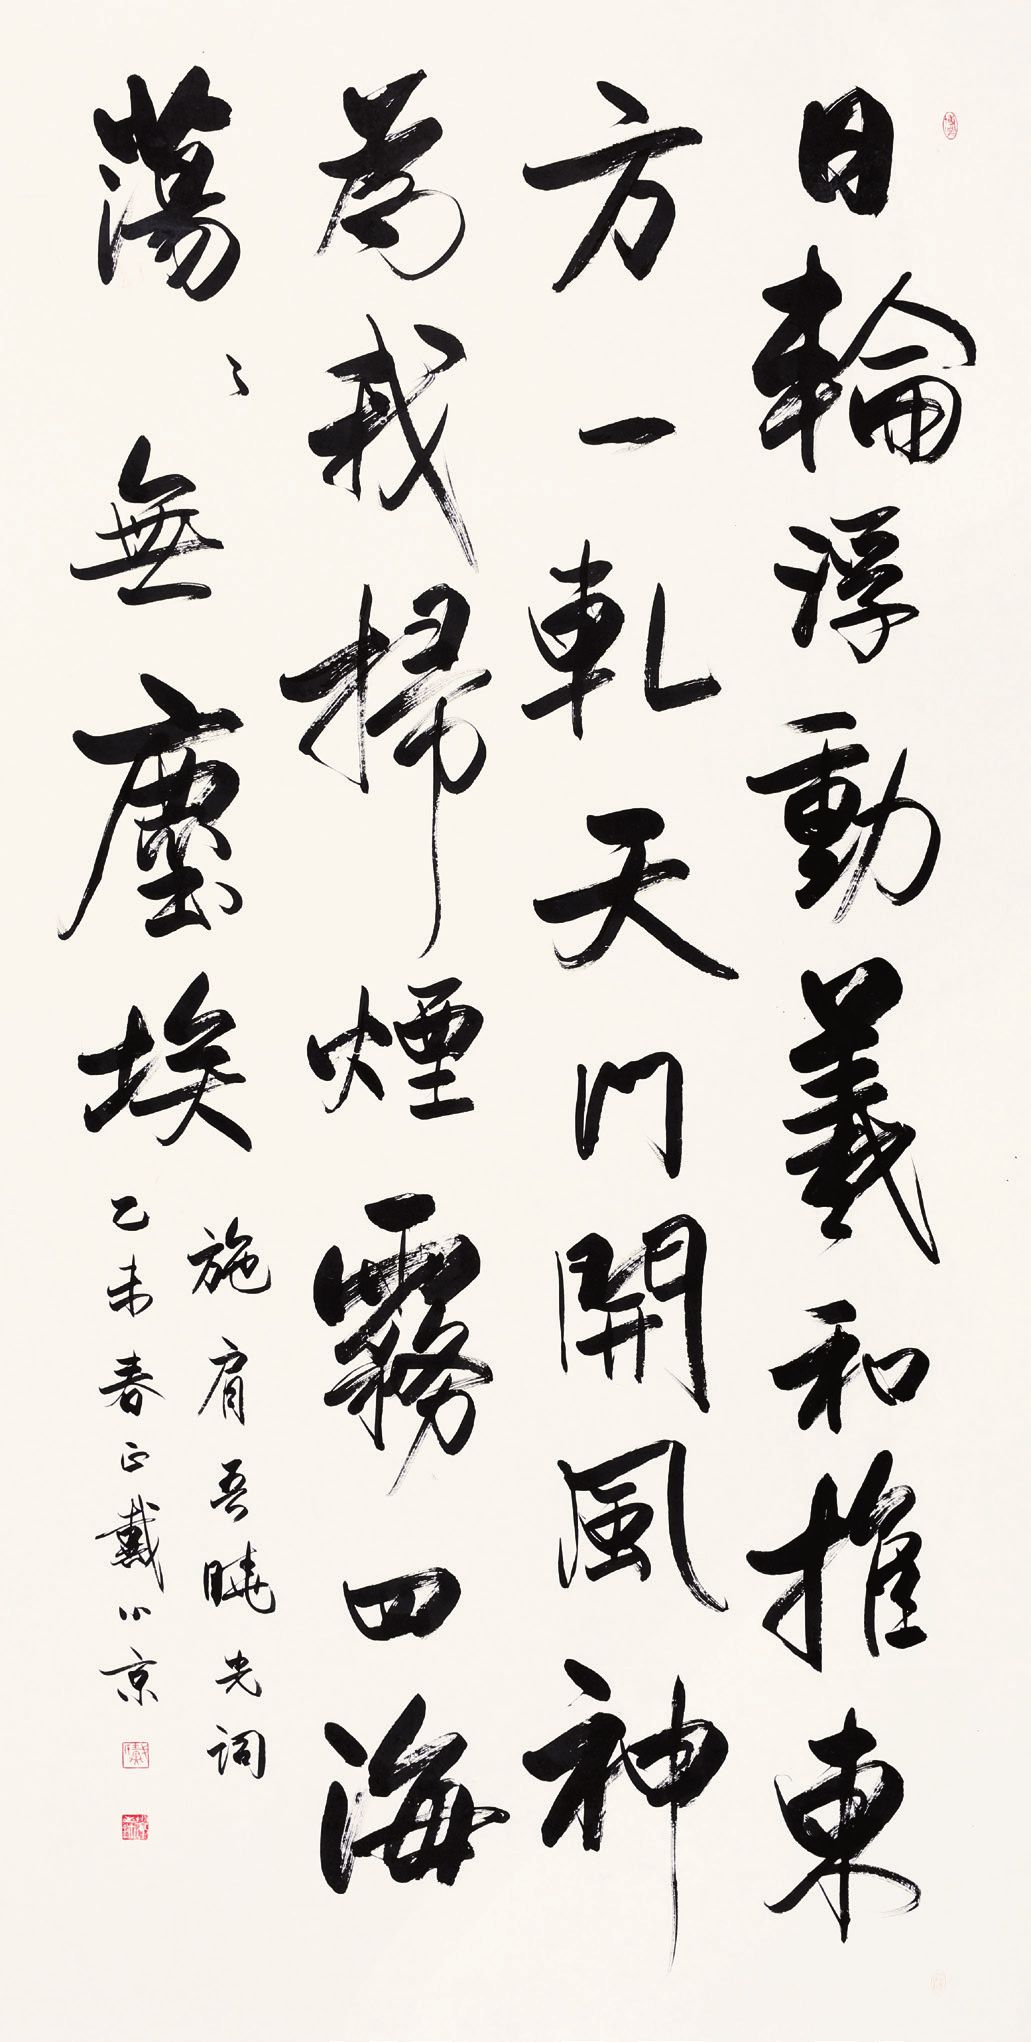 日輪浮動羲和推東
方一軋天門開風神
為我掃煙霧四海
蕩〻無塵埃
施肩吾曉光詞
乙未春正戴小京